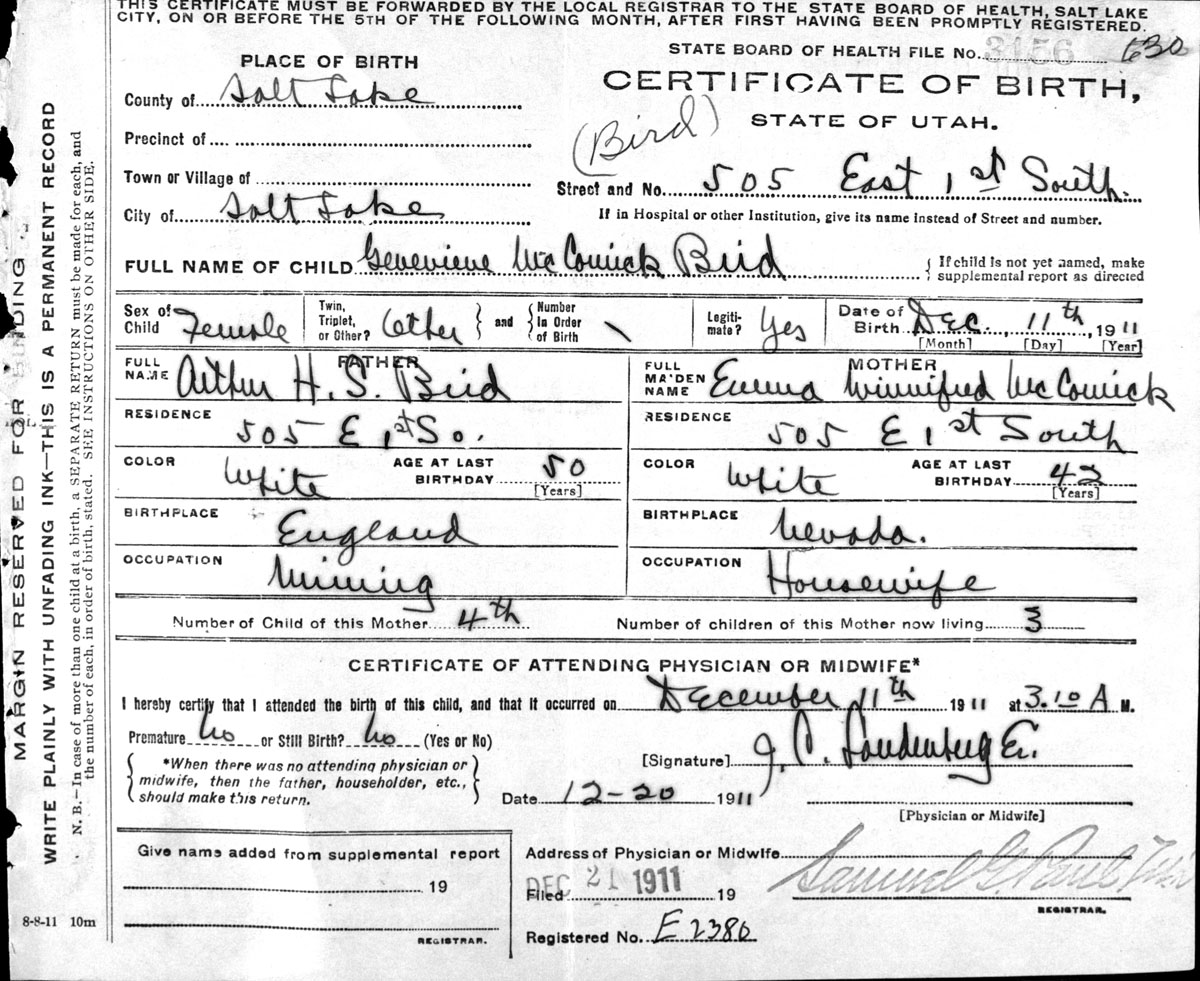 THIS CERTIFICATE MUST BE FORWARDED BY THE LOCAL REGISTRAR TO THE STATE BOARD OF HEALTH, SALT LAKE
CITY, ON OR BEFORE THE 5TH OF THE FOLLOWING MONTH, AFTER FIRST HAVING BEEN PROMPTLY REGISTERED.
STATE BOARD OF HEALTH FILE No. 3156 630
PLACE OF BIRTH
CERTIFICATE OF BIRTH,
STATE OF UTAH.
(Bird)
County of Salt Lake
Precinct of
Town or Village of
Street and No. 505 East 1st South.
City of Salt Lake
If in Hospital or other Institution, give its name instead of Street and number.
FULL NAME OF CHILD Genevieve McCornick Bird
If child is not yet named, make
supplemental report as directed
Sex of Child Female
Twin, Triplet, or Other? Other and Number in Order of Birth \
Legitimate? Yes
Date of Birth Dec. 11th 1911
[Month] [Day] [Year]
FATHER
FULL NAME Arthur H. S. Bird
MOTHER
FULL MAIDEN NAME Emma Winnifred McCornick
RESIDENCE 505 E 1st So.
RESIDENCE 505 E 1st South
COLOR White AGE AT LAST BIRTHDAY 50 [Years]
COLOR White AGE AT LAST BIRTHDAY 42 [Years]
BIRTHPLACE England
BIRTHPLACE Nevada.
OCCUPATION Mining
OCCUPATION Housewife
Number of Child of this Mother 4th
Number of children of this Mother now living 3
CERTIFICATE OF ATTENDING PHYSICIAN OR MIDWIFE*
I hereby certify that I attended the birth of this child, and that it occurred on December 11th 1911 at 3.10 A M.
Premature No or Still Birth? No (Yes or No)
*When there was no attending physician or
midwife, then the father, householder, etc.,
should make this return.
[Signature] J. C.
Date 12-20 1911
[Physician or Midwife]
Give name added from supplemental report
19
REGISTRAR.
Address of Physician or Midwife
Filed DEC 21 1911 19
Samuel G. Paul
REGISTRAR.
Registered No. E 2380
8-8-11 10m
MARGIN RESERVED FOR BINDING
WRITE PLAINLY WITH UNFADING INK—THIS IS A PERMANENT RECORD
N. B.—In case of more than one child at a birth, a SEPARATE RETURN must be made for each, and
the number of each, in order of birth, stated. SEE INSTRUCTIONS ON OTHER SIDE.